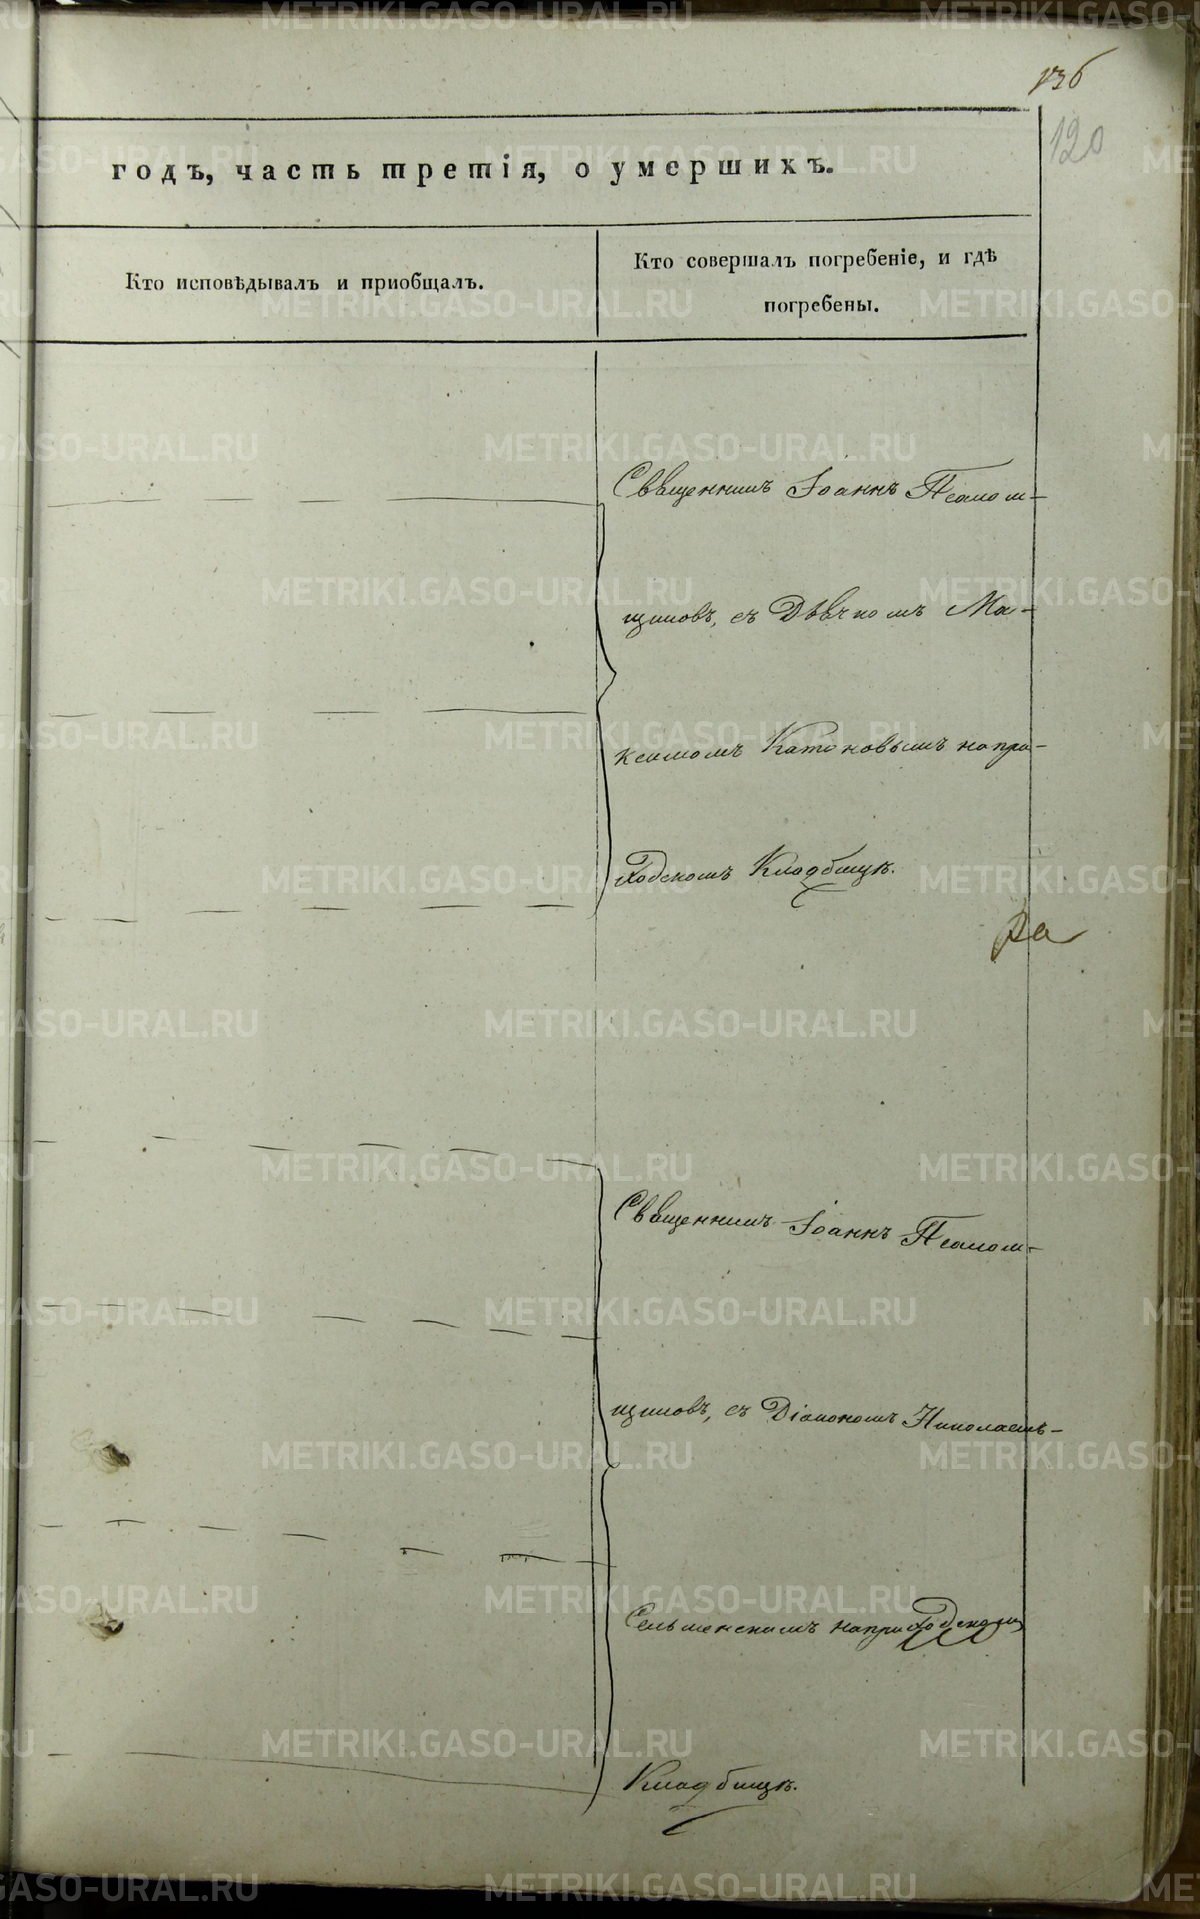 136
120
годъ, часть третія, о умершихъ.
Кто исповѣдывалъ и приобщалъ.
Кто совершалъ погребеніе, и гдѣ
погребены.
Священникъ Іоаннъ Псалом-
щиковъ, съ Дьячкомъ Ма-
ксимомъ Катановымъ напри-
ходскомъ Кладбищѣ.
Священникъ Іоаннъ Псалом-
щиковъ, съ Діакономъ Николаемъ-
Сельменскимъ наприходскомъ
Кладбищѣ.
METRIKI.GASO-URAL.RU